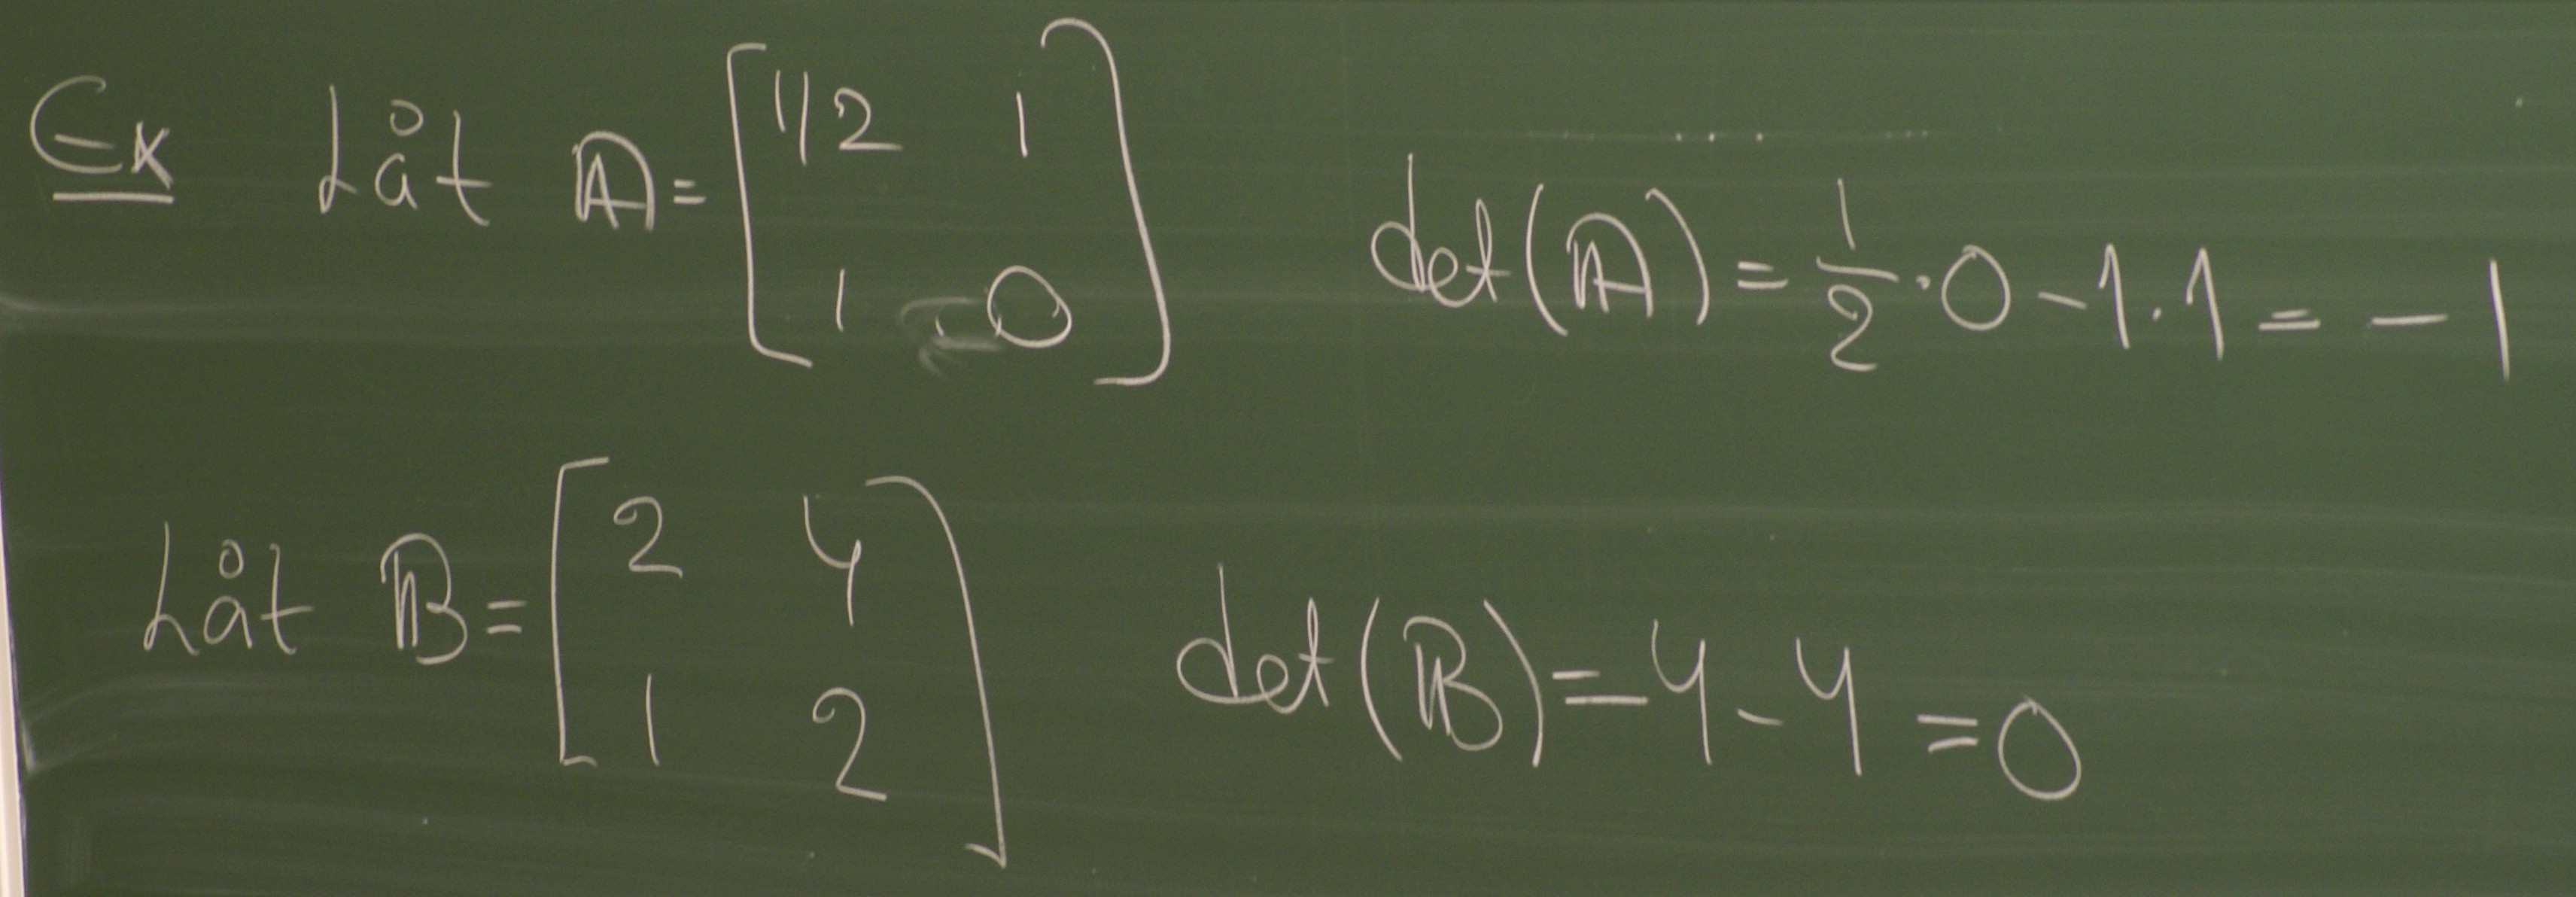 Ex Låt A = [1/2 1
1 0] det(A) = 1/2 · 0 - 1 · 1 = -1
Låt B = [2 4
1 2] det(B) = 4 - 4 = 0